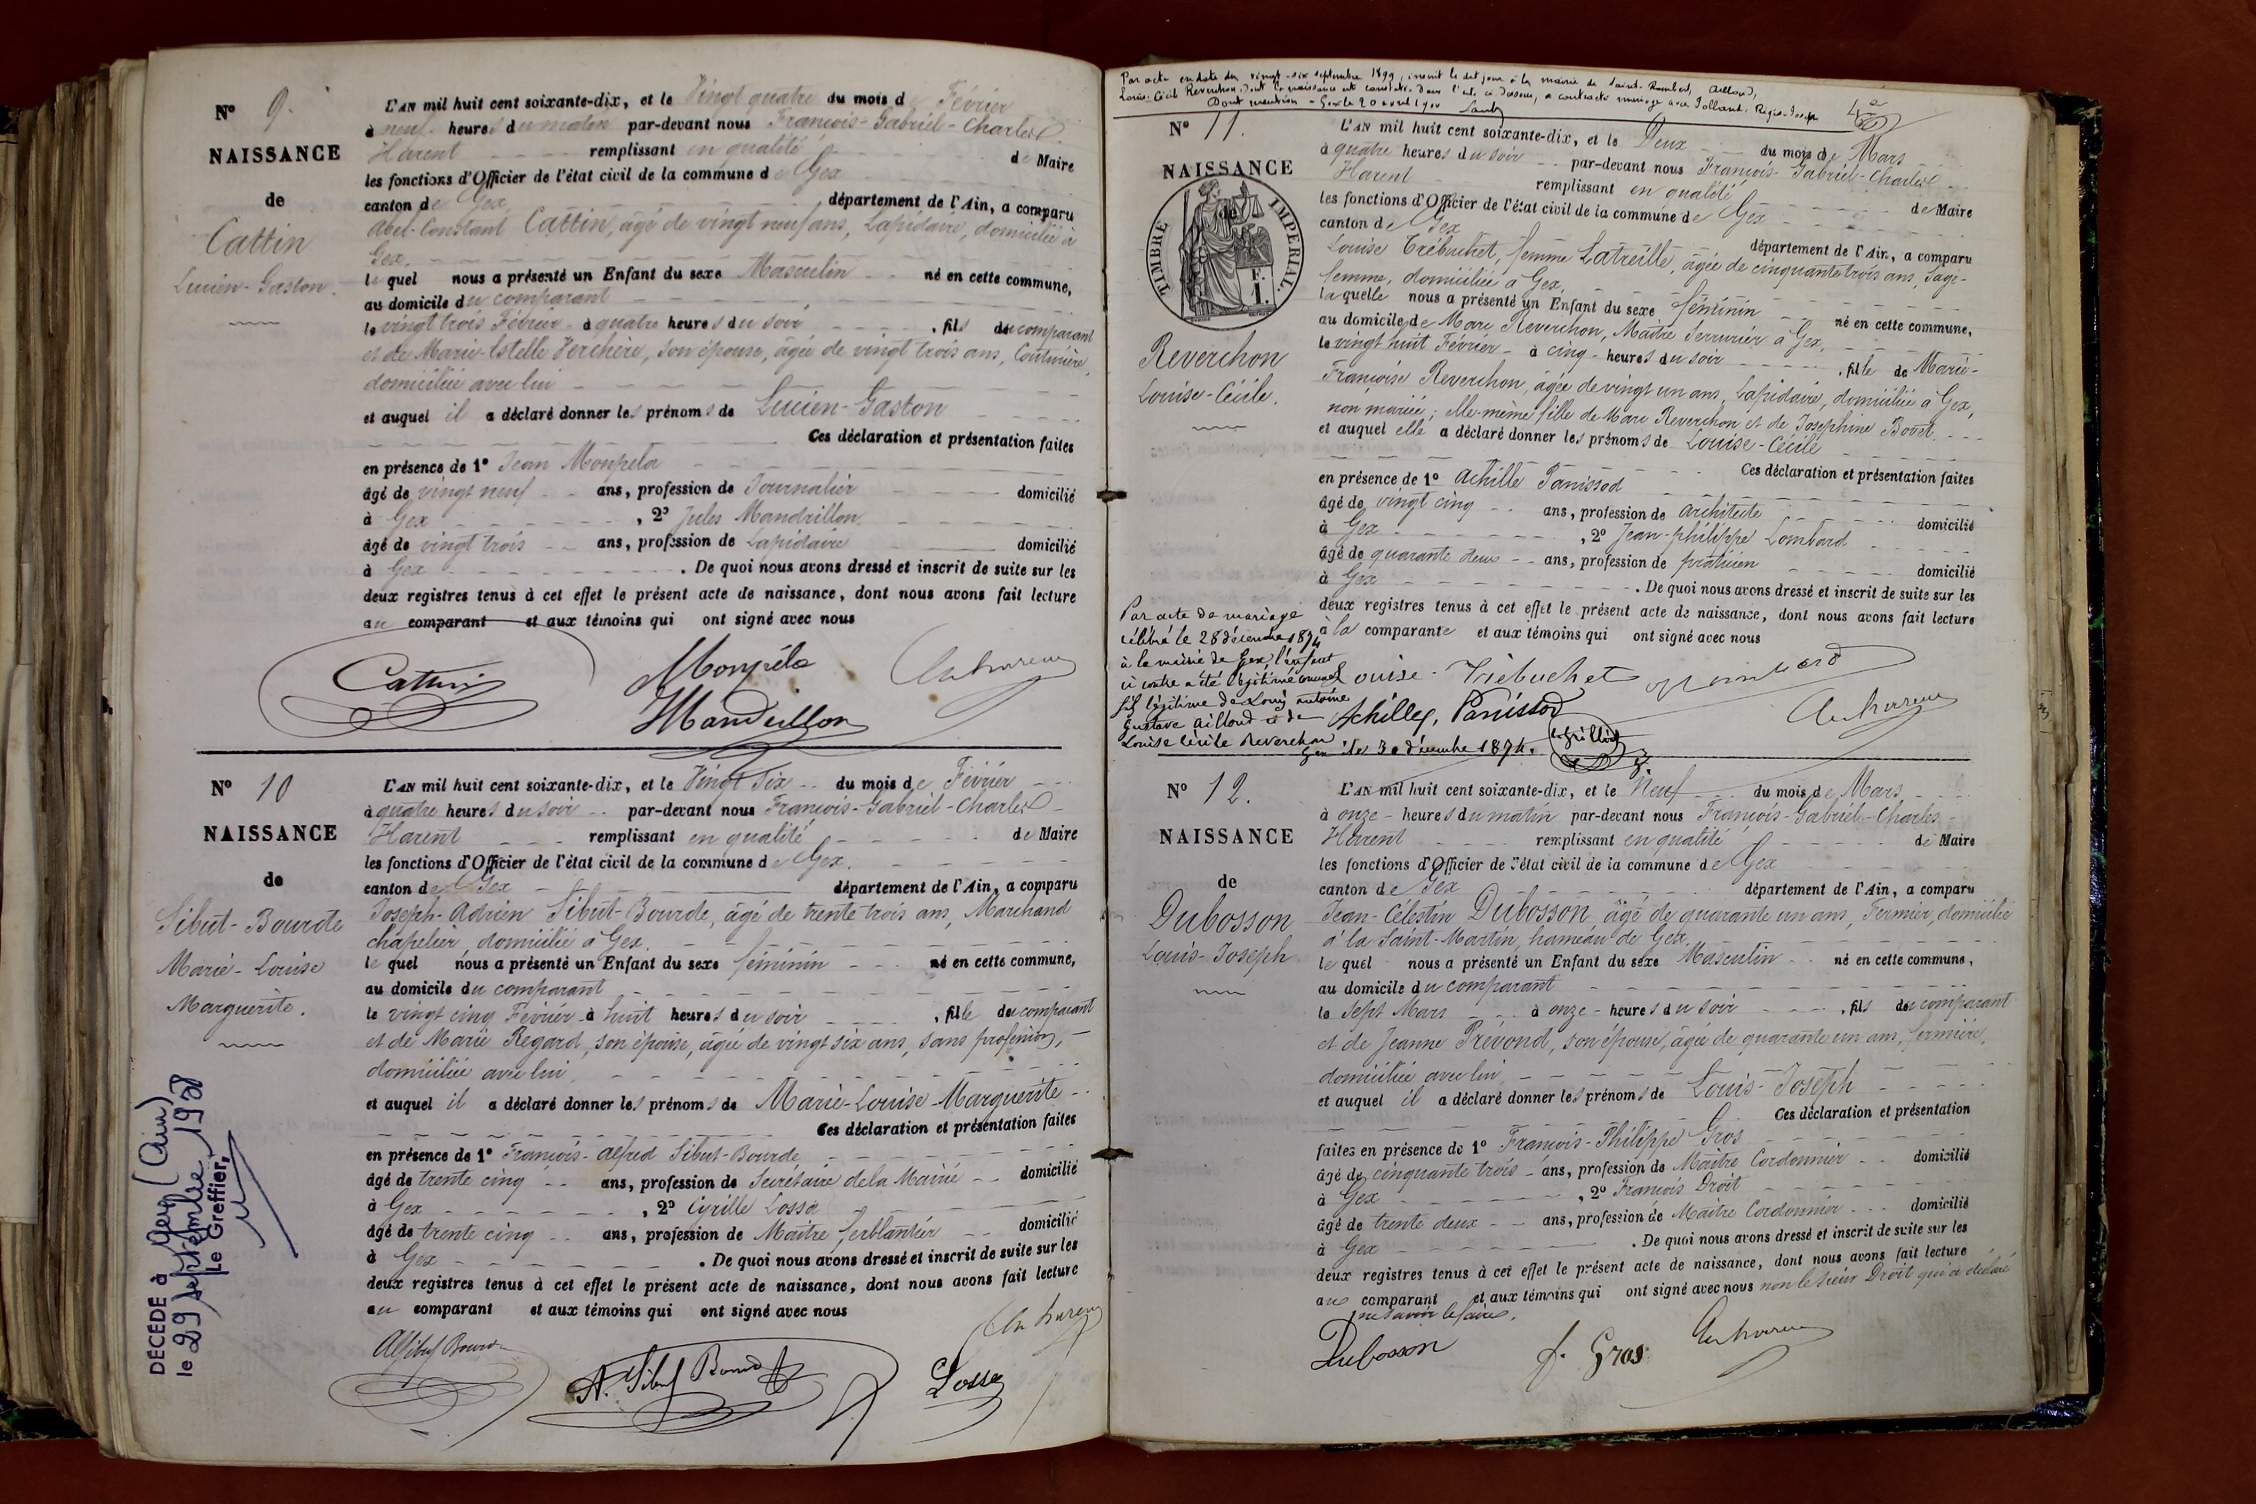 Nº 9.
NAISSANCE
de
Cattin
Lucien-Gaston.
L'AN mil huit cent soixante-dix, et le Vingt quatre du mois de Février
à neuf heures du matin par-devant nous François-Gabriel-Charles
Harent remplissant en qualité de Maire
les fonctions d'Officier de l'état civil de la commune de Gex
canton de Gex département de l'Ain, a comparu
Abel-Constant Cattin, âgé de vingt neuf ans, Lapidaire, domicilié à
Gex.
lequel nous a présenté un Enfant du sexe Masculin né en cette commune,
au domicile du comparant
le vingt trois Février à quatre heures du soir, fils du comparant
et de Marie-Estelle Verchère, son épouse, âgée de vingt trois ans, Couturière,
domiciliée avec lui
et auquel il a déclaré donner les prénoms de Lucien-Gaston
Ces déclaration et présentation faites
en présence de 1º Jean Monpela
âgé de vingt neuf ans, profession de Journalier domicilié
à Gex, 2º Jules Mandrillon
âgé de vingt trois ans, profession de Lapidaire domicilié
à Gex. De quoi nous avons dressé et inscrit de suite sur les
deux registres tenus à cet effet le présent acte de naissance, dont nous avons fait lecture
au comparant et aux témoins qui ont signé avec nous
Cattin Monpéla
Mandrillon
Nº 10
NAISSANCE
de
Sibut-Bourde
Marie-Louise
Marguerite.
L'AN mil huit cent soixante-dix, et le Vingt Six du mois de Février
à quatre heures du soir par-devant nous François-Gabriel-Charles
Harent remplissant en qualité de Maire
les fonctions d'Officier de l'état civil de la commune de Gex.
canton de Gex département de l'Ain, a comparu
Joseph-Adrien Sibut-Bourde, âgé de trente trois ans, Marchand
chapelier, domicilié à Gex.
lequel nous a présenté un Enfant du sexe féminin né en cette commune,
au domicile du comparant
le vingt cinq Février à huit heures du soir, fille du comparant
et de Marie Regard, son épouse, âgée de vingt six ans, sans profession,
domiciliée avec lui
et auquel il a déclaré donner les prénoms de Marie-Louise-Marguerite
Ces déclaration et présentation faites
en présence de 1º François-Alfred Sibut-Bourde
âgé de trente cinq ans, profession de Secrétaire de la Mairie domicilié
à Gex, 2º Cyrille Lossa
âgé de trente cinq ans, profession de Maître ferblantier domicilié
à Gex. De quoi nous avons dressé et inscrit de suite sur les
deux registres tenus à cet effet le présent acte de naissance, dont nous avons fait lecture
au comparant et aux témoins qui ont signé avec nous
A. Sibut Bourde Lossa
DÉCÉDÉ à Gex (Ain)
le 29 septembre 1958
Le Greffier,
Par acte en date du vingt-six septembre 1899, inscrit le dit jour à la mairie de Saint-Rambert, Aillaud,
Louise-Cécile Reverchon, dont la naissance est constatée dans l'acte ci dessous, a contracté mariage avec Jolland Régis-Joseph
Dont mention - Gex le 20 avril 1900
Nº 11.
NAISSANCE
de
TIMBRE IMPERIAL
F. 1.
Reverchon
Louise-Cécile.
L'AN mil huit cent soixante-dix, et le Deux du mois de Mars
à quatre heures du soir par-devant nous François-Gabriel-Charles
Harent remplissant en qualité de Maire
les fonctions d'Officier de l'état civil de la commune de Gex
canton de Gex département de l'Ain, a comparu
Louise Trébuchet, femme Latreille, âgée de cinquante trois ans, Sage-
femme, domiciliée à Gex,
laquelle nous a présenté un Enfant du sexe féminin né en cette commune,
au domicile de Marc Reverchon, Maître Serrurier à Gex,
le vingt huit Février à cinq heures du soir, fille de Marie-
Françoise Reverchon, âgée de vingt un ans, Lapidaire, domiciliée à Gex,
non mariée; elle-même fille de Marc Reverchon et de Josephine Bovet
et auquel elle a déclaré donner les prénoms de Louise-Cécile
Ces déclaration et présentation faites
en présence de 1º Achille Panissod
âgé de vingt cinq ans, profession de architecte domicilié
à Gex, 2º Jean-philippe Lombard
âgé de quarante deux ans, profession de praticien domicilié
à Gex. De quoi nous avons dressé et inscrit de suite sur les
deux registres tenus à cet effet le présent acte de naissance, dont nous avons fait lecture
à la comparante et aux témoins qui ont signé avec nous
Par acte de mariage
célébré le 28 décembre 1874
à la mairie de Gex, l'enfant
ci contre a été légitimé comme
fille légitime de Louis antoine
Gustave Ailloud et de
Louise Cécile Reverchon
Gex le 30 décembre 1874.
Louise Trébuchet
Achille Panissod
Nº 12.
NAISSANCE
de
Dubosson
Louis-Joseph
L'AN mil huit cent soixante-dix, et le Neuf du mois de Mars
à onze heures du matin par-devant nous François-Gabriel-Charles
Harent remplissant en qualité de Maire
les fonctions d'Officier de l'état civil de la commune de Gex
canton de Gex département de l'Ain, a comparu
Jean-Célestin Dubosson âgé de quarante un ans, Fermier, domicilié
à la Saint-Martin, hameau de Gex.
lequel nous a présenté un Enfant du sexe Masculin né en cette commune,
au domicile du comparant
le Sept Mars à onze heures du soir, fils du comparant
et de Jeanne Prévond, son épouse, âgée de quarante un ans, fermière,
domiciliée avec lui
et auquel il a déclaré donner les prénoms de Louis-Joseph
Ces déclaration et présentation
faites en présence de 1º François-Philippe Gros
âgé de cinquante trois ans, profession de Maître Cordonnier domicilié
à Gex, 2º François Droit
âgé de trente deux ans, profession de Maître Cordonnier domicilié
à Gex. De quoi nous avons dressé et inscrit de suite sur les
deux registres tenus à cet effet le présent acte de naissance, dont nous avons fait lecture
au comparant et aux témoins qui ont signé avec nous non le sieur Droit qui a déclaré
ne savoir le faire.
Dubosson f. Gros